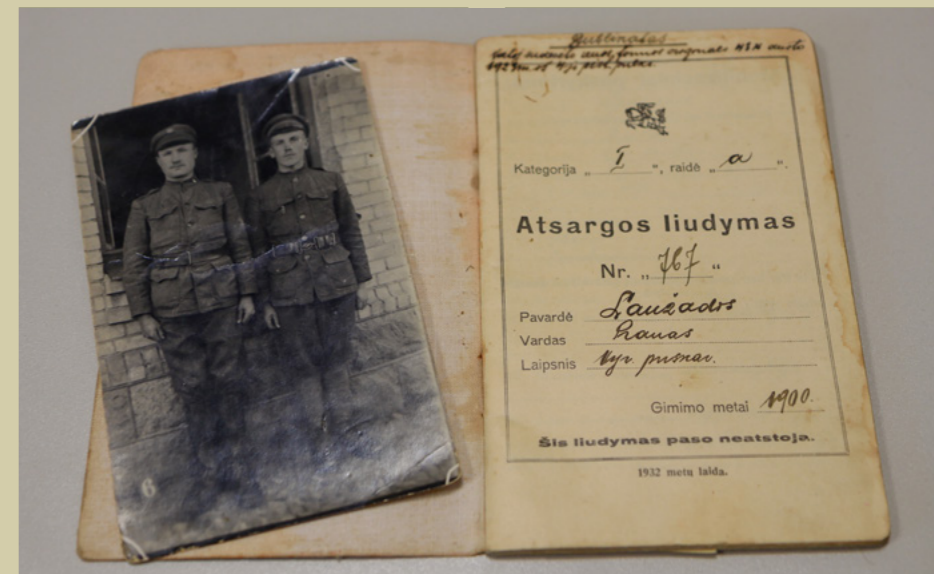 Dublikatas
Kategorija „ I “, raidė „ a “.
Atsargos liudymas
Nr. „ 767 “
Pavardė Laužados
Vardas Pranas
Laipsnis Vyr. puskar.
Gimimo metai 1900.
Šis liudymas paso neatstoja.
1932 metų laida.
6